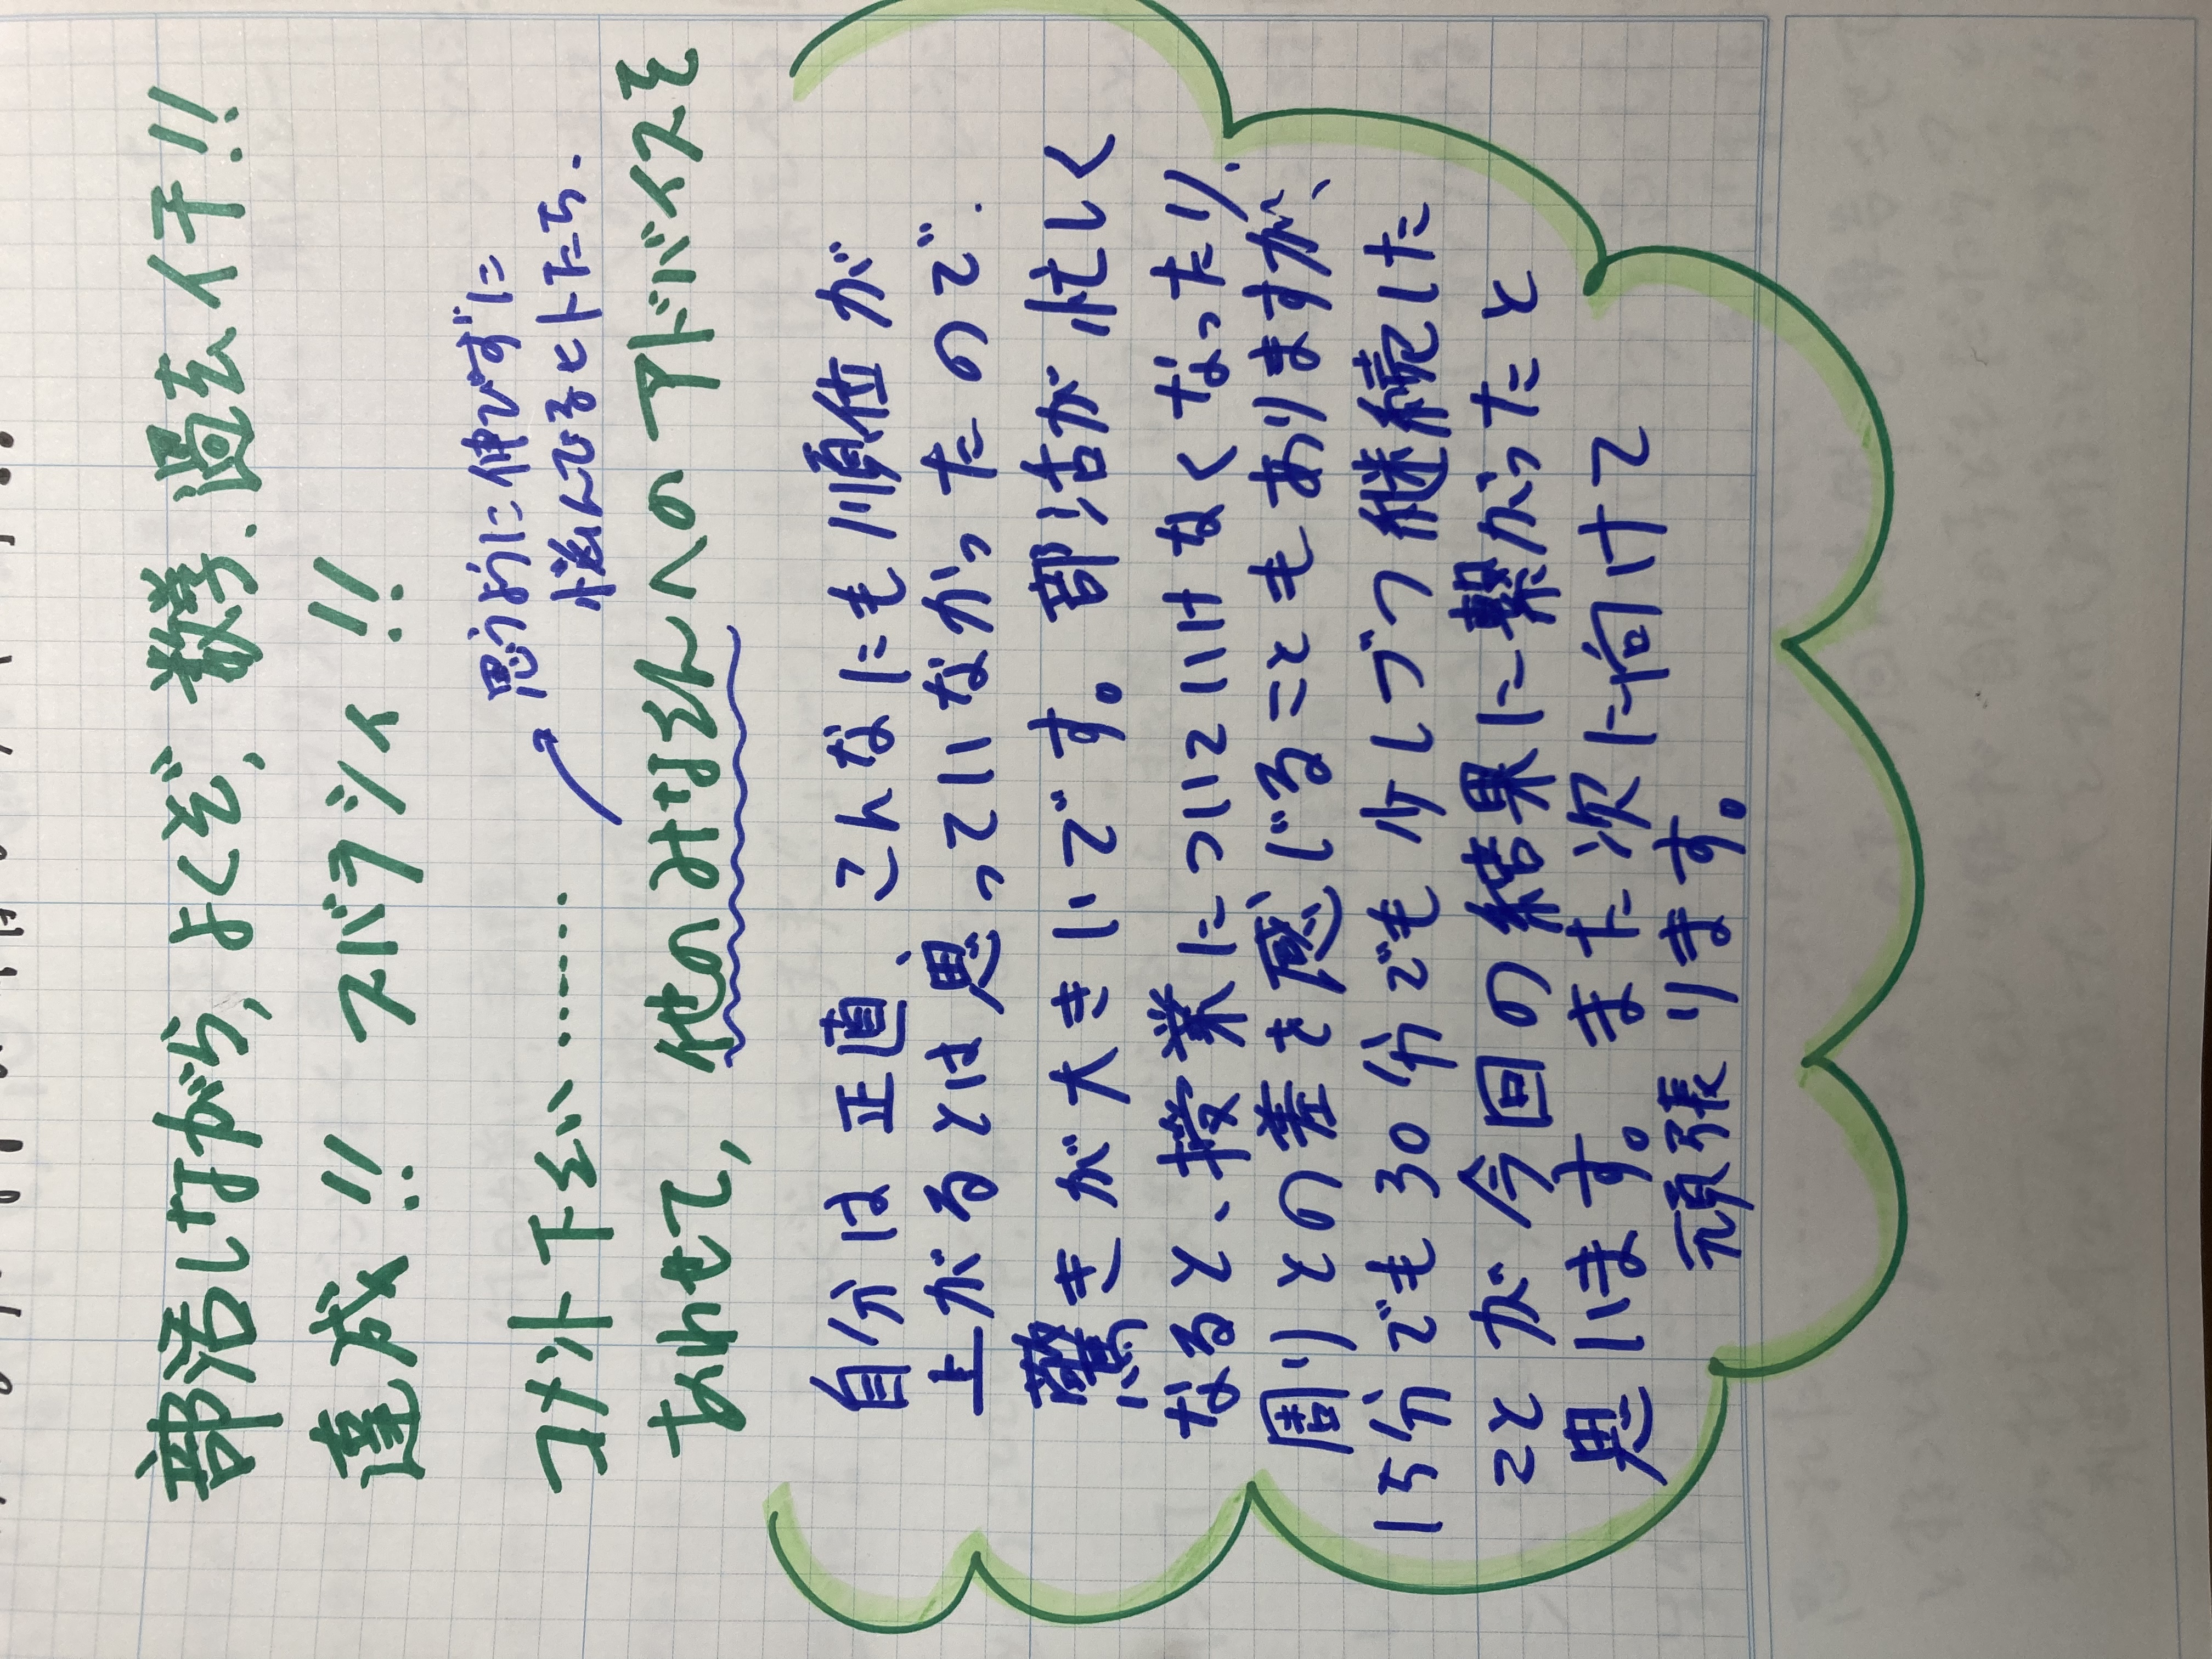 部活しながら、よくぞ、数学、過去イチ!!
達成!! スバラシイ!!
コメント下さい……
思うように伸びずに
悩んでるヒトたち.
あわせて、他のみなさんへのアドバイスを
自分は正直、こんなにも順位が
上がるとは思っていなかったので.
驚きが大きいです。部活が忙しく
なると、授業についていけなくなったり.
周りとの差を感じることもありますが、
15分でも30分でも少しづつ継続した
ことが今回の結果に繋がったと
思います。また次に向けて
頑張ります。